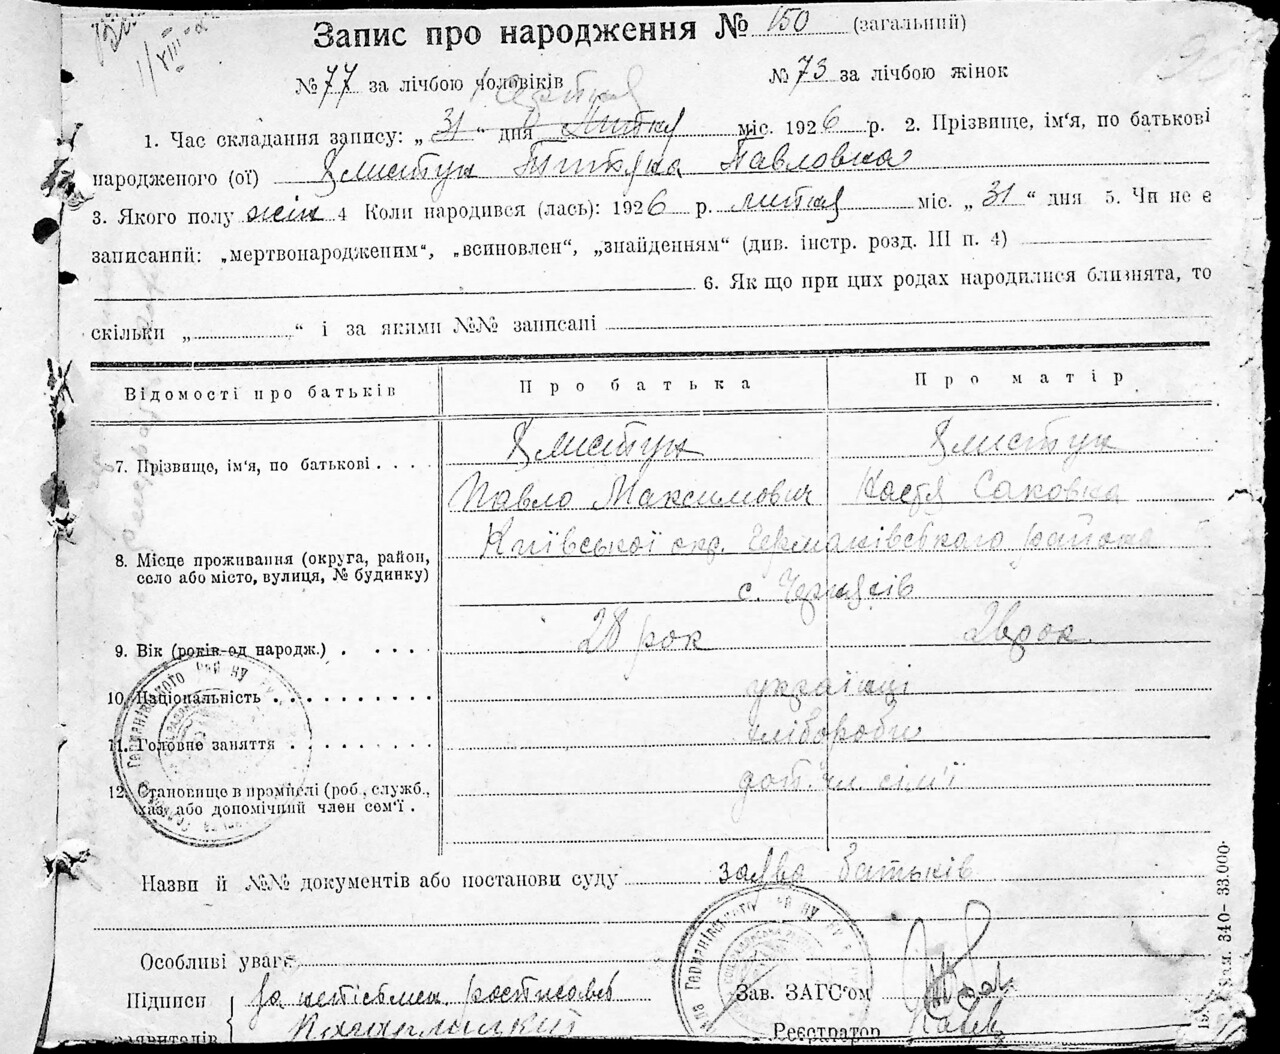 Запис про народження № 150 (загальний)
№ 77 за лічбою чоловіків № 73 за лічбою жінок
1. Час складання запису: „ 31 “ дня Липня міс. 1926 р. 2. Прізвище, ім'я, по батькові
народженого (ої) Хлистун Титяна Павловна
3. Якого полу жін 4 Коли народився (лась): 1926 р. липня міс. „ 31 “ дня 5. Чи не є
записаний: „мертвонародженим“, „всиновлен“, „знайденням“ (див. інстр. розд. III п. 4)
6. Як що при цих родах народилися близнята, то
скільки „ “ і за якими №№ записані
Відомості про батьків Про батька Про матір
7. Прізвище, ім'я, по батькові . . . . Хлистун Хлистун
Павло Максимович Настя Саковна
8. Місце проживання (округа, район, село або місто, вулиця, № будинку) Київської окр. Германівського района
с. Черняхів
9. Вік (років од народж.) . . . . . 28 рок 26 рок
10. Національність . . . . . . . . . українці
11. Головне заняття . . . . . . . . хлібороби
12. Становище в промислі (роб., служб., хаз. або допомічний член сем'ї . доп. чл. сім'ї
Назви й №№ документів або постанови суду заява батьків
Особливі уваги
Зав. ЗАГС'ом
Підписи заявителів За неписьмен. росписавсь
Реєстратор
Зам. 340—33.000.